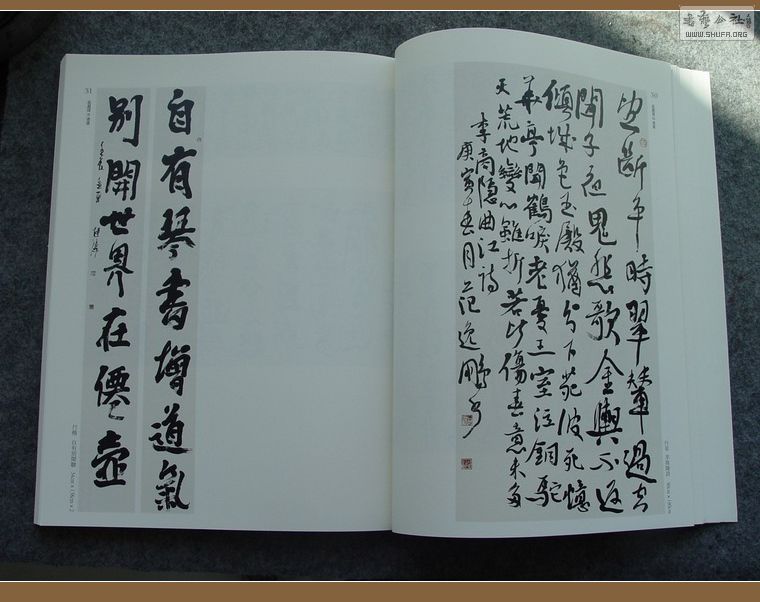 書藝公社
WWW.SHUFA.ORG
50
望斷平時翠輦過空
聞子夜鬼悲歌金輿不返
傾城色玉殿猶分下苑波死憶
華亭聞鶴唳老憂王室泣銅駝
天荒地變心雖折若比傷春意未多
李商隱曲江詩
庚寅年春月范逸鵬書
51
自有琴書增道氣
別開世界在僊壺